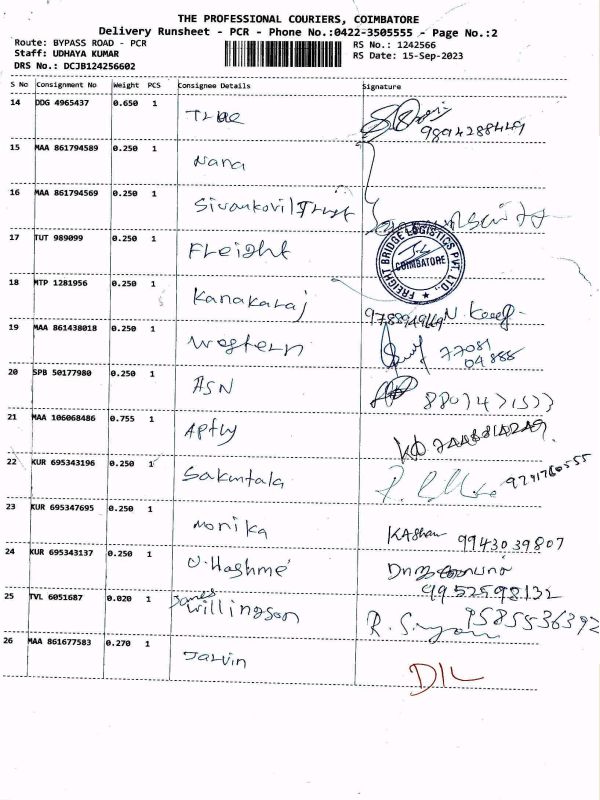 THE PROFESSIONAL COURIERS, COIMBATORE
Delivery Runsheet - PCR - Phone No.:0422-3505555 - Page No.:2
Route: BYPASS ROAD - PCR
Staff: UDHAYA KUMAR
DRS No.: DCJB124256602
RS No.: 1242566
RS Date: 15-Sep-2023
S No Consignment No Weight PCS Consignee Details Signature
14 DDG 4965437 0.650 1
9894288449
15 MAA 861794589 0.250 1 Nana
16 MAA 861794569 0.250 1 Sivankovil Trust
17 TUT 989099 0.250 1 Freight
FREIGHT BRIDGE LOGISTICS PVT. LTD.,
COIMBATORE
18 MTP 1281956 0.250 1 Kanakaraj
19 MAA 861438018 0.250 1 Western 77081
04888
20 SPB 50177980 0.250 1 ASN
21 MAA 106068486 0.755 1 Aptly
22 KUR 695343196 0.250 1 Sakuntala
23 KUR 695347695 0.250 1 Monika 9943039807
24 KUR 695343137 0.250 1 U.Hashme
9952598132
25 TVL 6051687 0.020 1 James
Willingson
26 MAA 861677583 0.270 1 Jarvin DIL